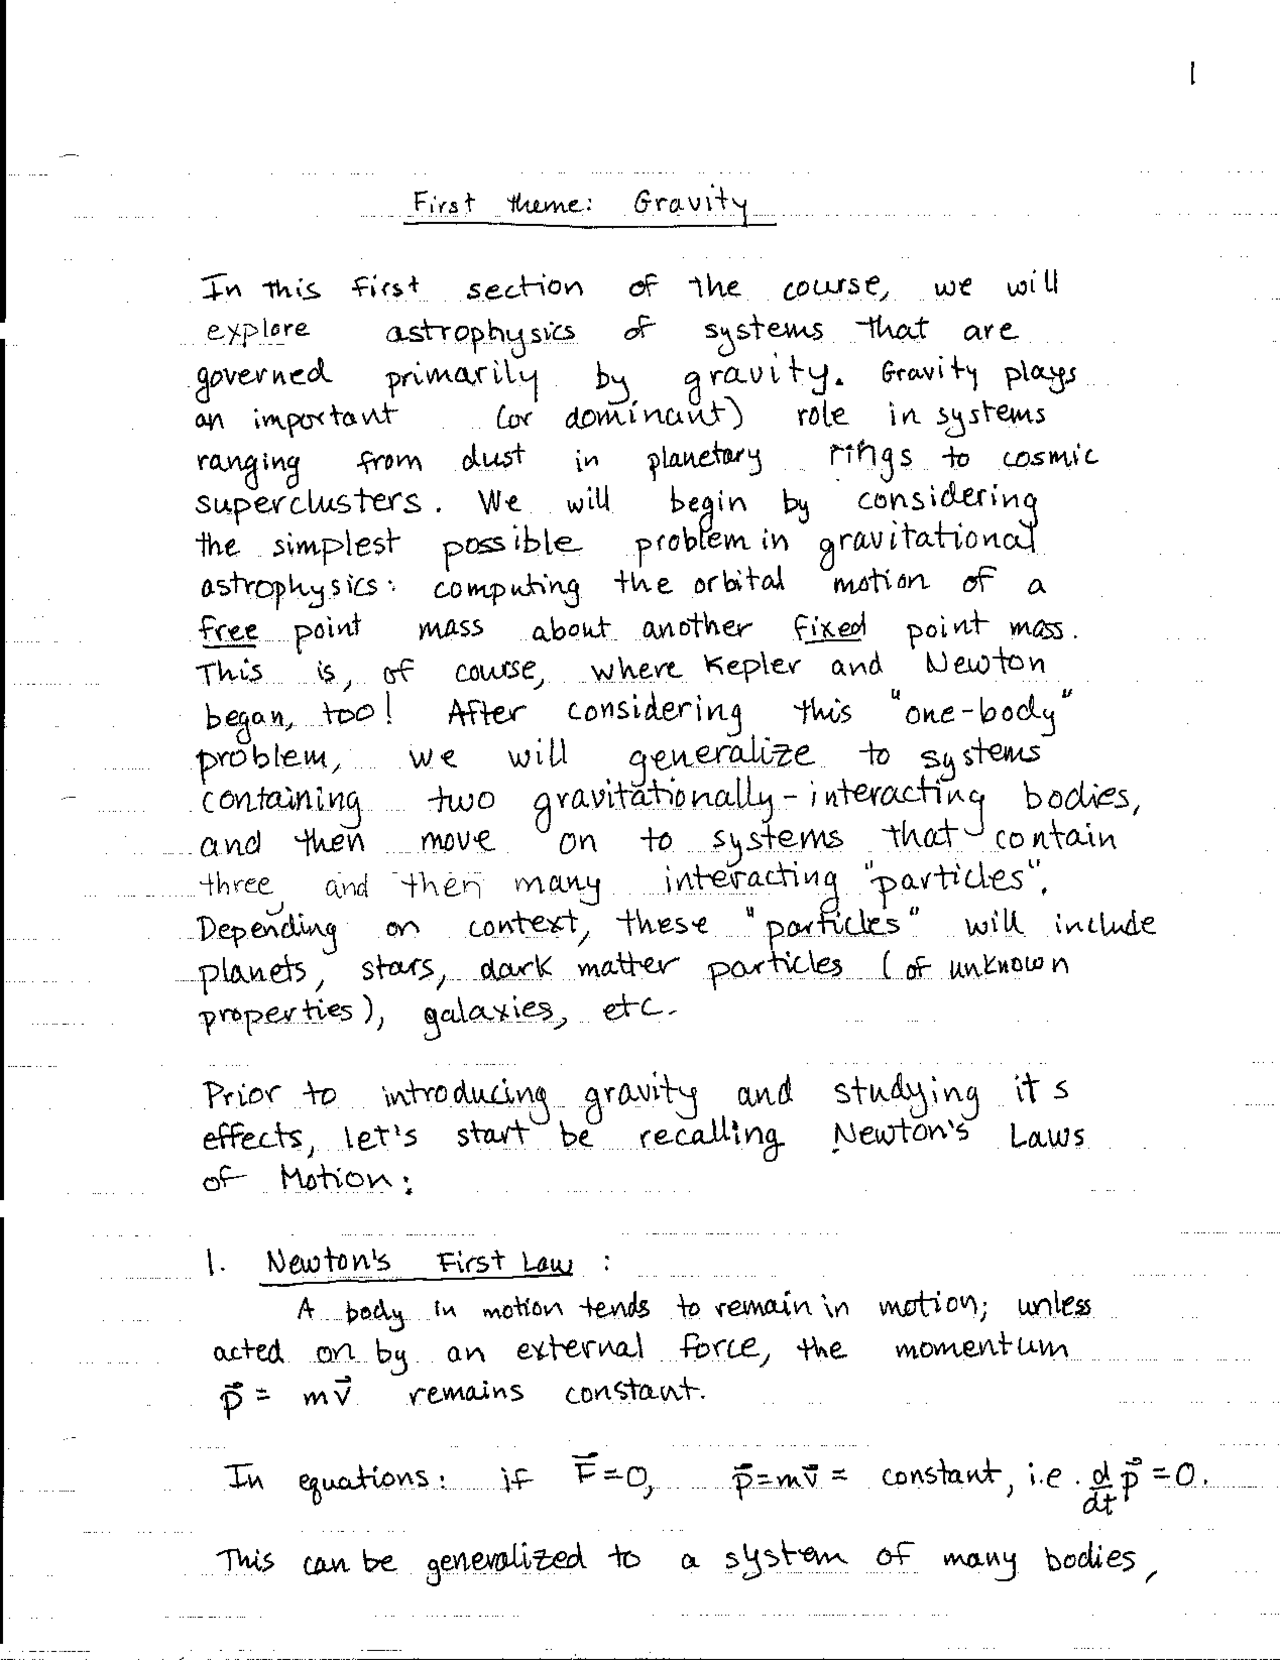 1
First theme: Gravity
In this first section of the course, we will
explore astrophysics of systems that are
governed primarily by gravity. Gravity plays
an important (or dominant) role in systems
ranging from dust in planetary rings to cosmic
superclusters. We will begin by considering
the simplest possible problem in gravitational
astrophysics: computing the orbital motion of a
free point mass about another fixed point mass.
This is, of course, where Kepler and Newton
began, too! After considering this "one-body"
problem, we will generalize to systems
containing two gravitationally-interacting bodies,
and then move on to systems that contain
three, and then many interacting "particles".
Depending on context, these "particles" will include
planets, stars, dark matter particles (of unknown
properties), galaxies, etc.
Prior to introducing gravity and studying its
effects, let's start be recalling Newton's Laws
of Motion:
1. Newton's First Law :
A body in motion tends to remain in motion; unless
acted on by an external force, the momentum
p⃗ = mv⃗ remains constant.
In equations: if F⃗=0, p⃗=mv⃗ = constant, i.e. d/dt p⃗ =0.
This can be generalized to a system of many bodies,